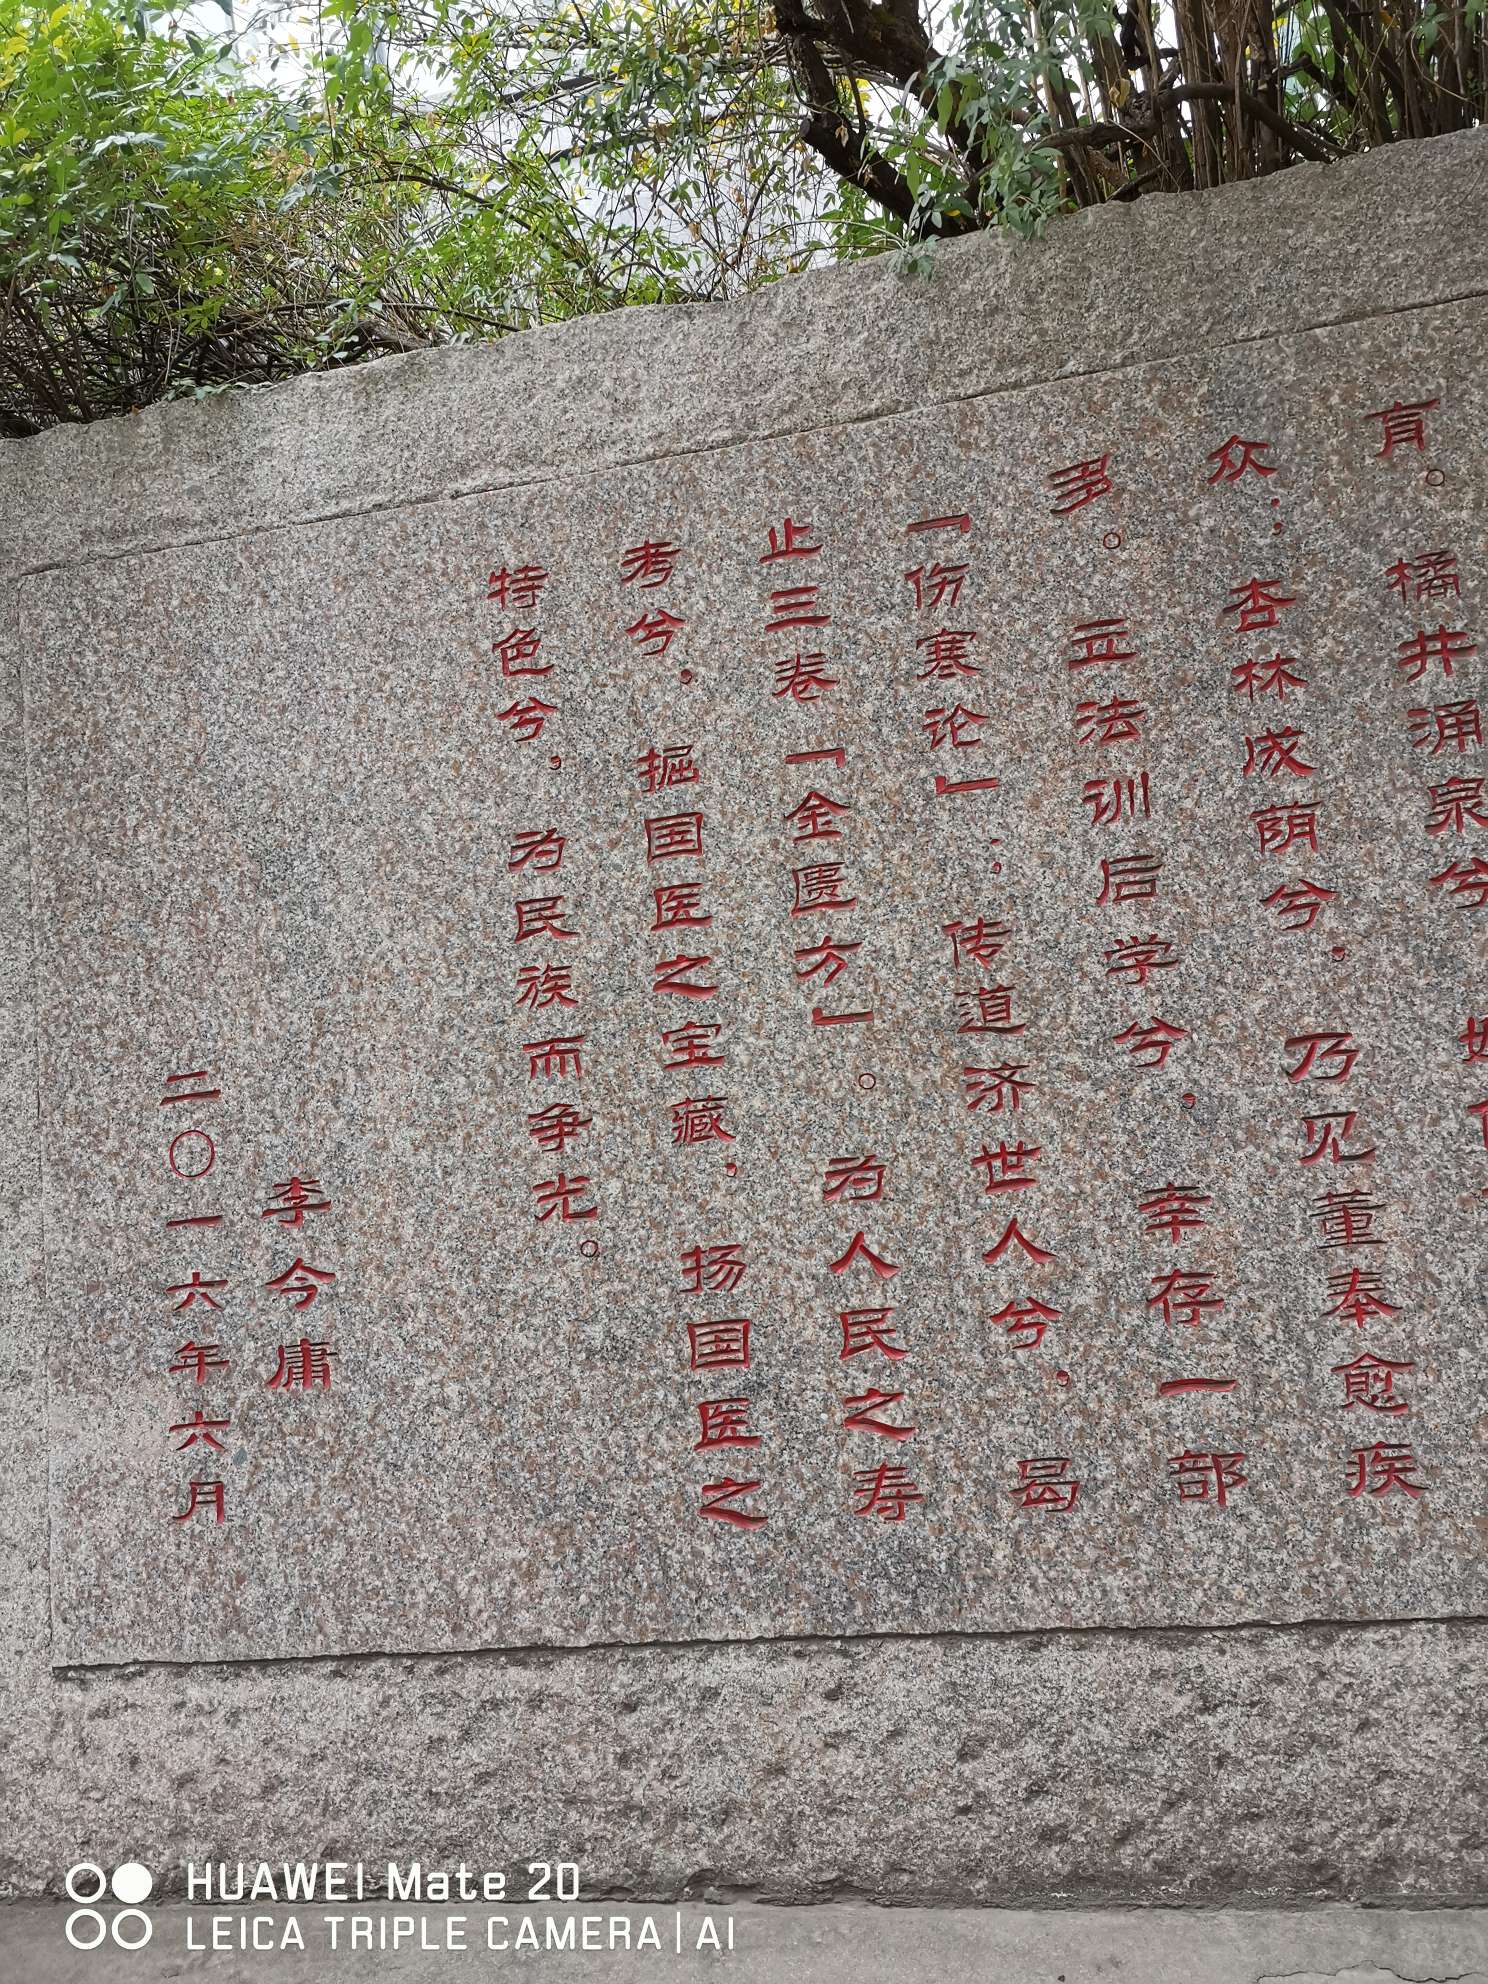 育。橘井涌泉兮
众；杏林成荫兮，乃见董奉愈疾
多。立法训后学兮，幸存一部
「伤寒论」；传道济世人兮，曷
止三卷「金匮方」。为人民之寿
考兮，掘国医之宝藏，扬国医之
特色兮，为民族而争光。
李今庸
二〇一六年六月
HUAWEI Mate 20
LEICA TRIPLE CAMERA | AI